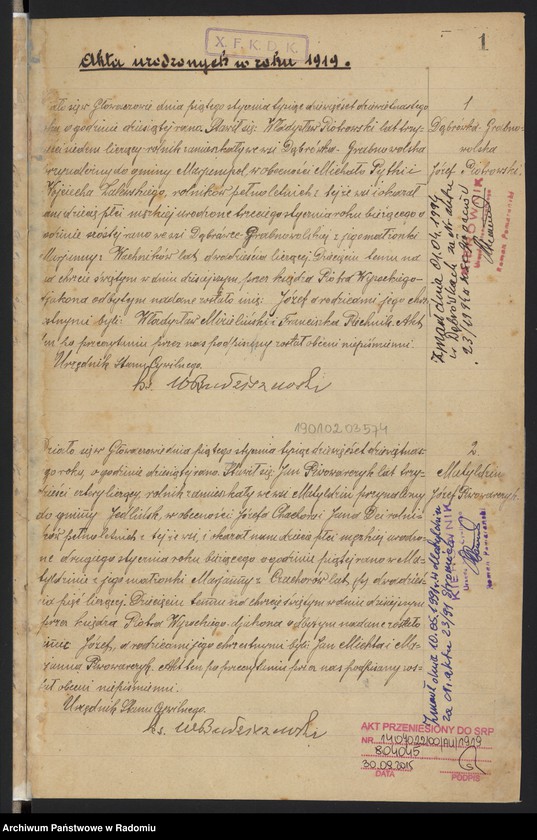 X. F. K. D. K.
1
Akta urodzonych w roku 1919.
ało się w Głowaczowie dnia piątego stycznia tysiąc dziewięćset dziewiętnastego
o godzinie dziesiątej rano. Stawił się: Władysław Piotrowski lat trzy-
siedem liczący rolnik zamieszkały we wsi Dąbrówka-Grabnowolska
do gminy w obecności Michała
Wojciecha Zalewskiego, rolników pełnoletnich z tejże wsi i okazał
dziecię płci męskiej urodzone trzeciego stycznia roku bieżącego o
godzinie szóstej rano we wsi Dąbrówce-Grabnowolskiej z jego małżonki
Marjanny z lat dwadzieścia liczącej. Dziecięciu temu na
chrzcie świętym w dniu dzisiejszym przez księdza Piotra Wysockiego-
djakona odbytym nadane zostało imię: Józef, a rodzicami jego chrze-
stnymi byli: Władysław i Franciszka Akt
ten po przeczytaniu przez nas podpisany został obecni niepiśmienni.
Urzędnik Stanu Cywilnego.
ks.
1
Dąbrówka-Grabno-
wolska
Józef Piotrowski
Zmarł dnia 01.04.1994
w Dąbrówkach
KIEROWNIK
Roman Pomarański
1901020 3574
Działo się w Głowaczowie dnia piątego stycznia tysiąc dziewięćset dziewiętnas-
tego roku, o godzinie dziesiątej rano. Stawił się: Jan Piwowarczyk lat trzy-
dzieści cztery liczący, rolnik zamieszkały we wsi Matyldzin przynależnej
do gminy Jedlińsk, w obecności Józefa i Jana rolni-
ków pełnoletnich z tejże wsi, i okazał nam dziecię płci męskiej urodzo-
ne drugiego stycznia roku bieżącego o godzinie piątej rano w Ma-
tyldzinie z jego małżonki Marjanny z lat dwadzieś-
cia pięć liczącej. Dziecięciu temu na chrzcie świętym w dniu dzisiejszym
przez księdza Piotra Wysockiego-djakona odbytym nadane zostało
imię: Józef, a rodzicami jego chrzestnymi byli: Jan Michta i Ma-
rjanna Piwowarczyk. Akt ten po przeczytaniu przez nas podpisany zos-
tał obecni niepiśmienni.
Urzędnik Stanu Cywilnego.
ks.
2.
Matyldzin
Józef Piwowarczyk
Zmarł dnia 10.05.1991 w Matyldzinie
KIEROWNIK
Roman Pomarański
AKT PRZENIESIONY DO SRP
NR 1409022/00/AU/1919
804045
30.09.2015
DATA PODPIS
Archiwum Państwowe w Radomiu